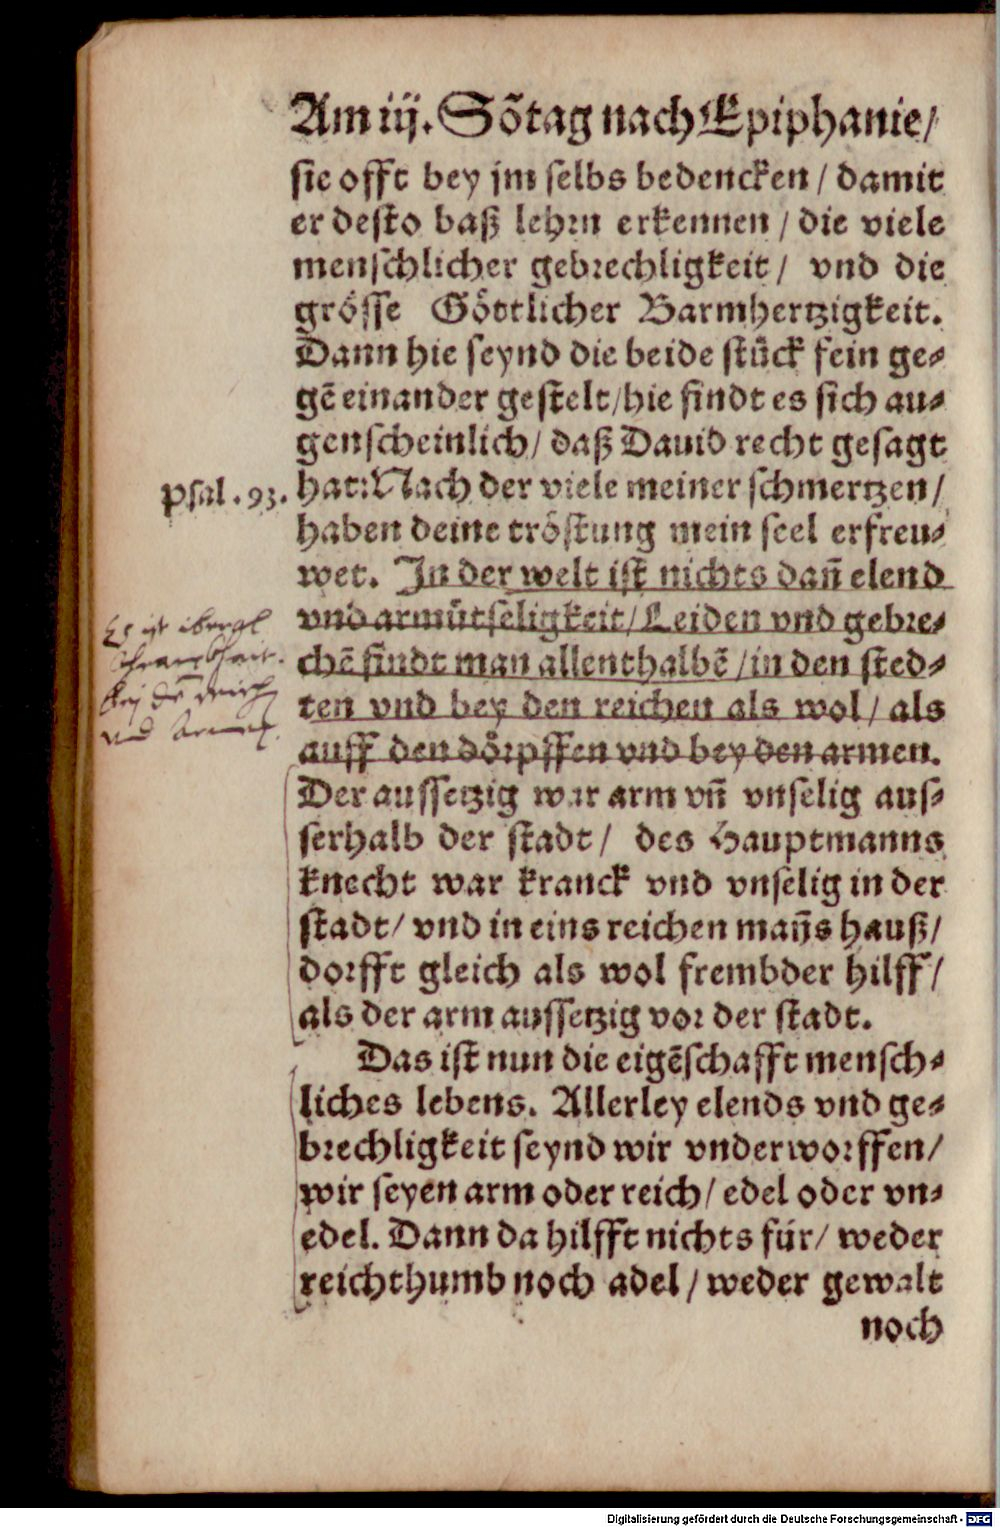 Am iij. Sõtag nach Epiphanie/
sie offt bey jm selbs bedencken / damit
er desto baß lehrn erkennen / die viele
menschlicher gebrechligkeit / vnd die
grösse Göttlicher Barmhertzigkeit.
Dann hie seynd die beide stück fein ge-
gẽ einander gestelt/hie findt es sich au-
genscheinlich/ daß Dauid recht gesagt
Psal. 93.
hat: Nach der viele meiner schmertzen/
haben deine tröstung mein seel erfreu-
wet. In der welt ist nichts dañ elend
vnd armütseligkeit/ Leiden vnd gebre-
chẽ findt man allenthalbẽ /in den sted-
ten vnd bey den reichen als wol/ als
auff den dörpffen vnd bey den armen.
Es ist iberal
vnd Armen
Der aussetzig war arm vñ vnselig aus-
serhalb der stadt/ des Hauptmanns
knecht war kranck vnd vnselig in der
stadt/ vnd in eins reichen mañs hauß/
dorfft gleich als wol frembder hilff/
als der arm aussetzig vor der stadt.
Das ist nun die eigẽschafft mensch-
liches lebens. Allerley elends vnd ge-
brechligkeit seynd wir vnderworffen/
wir seyen arm oder reich/ edel oder vn-
edel. Dann da hilfft nichts für/ weder
reichthumb noch adel / weder gewalt
noch
Digitalisierung gefördert durch die Deutsche Forschungsgemeinschaft - DFG